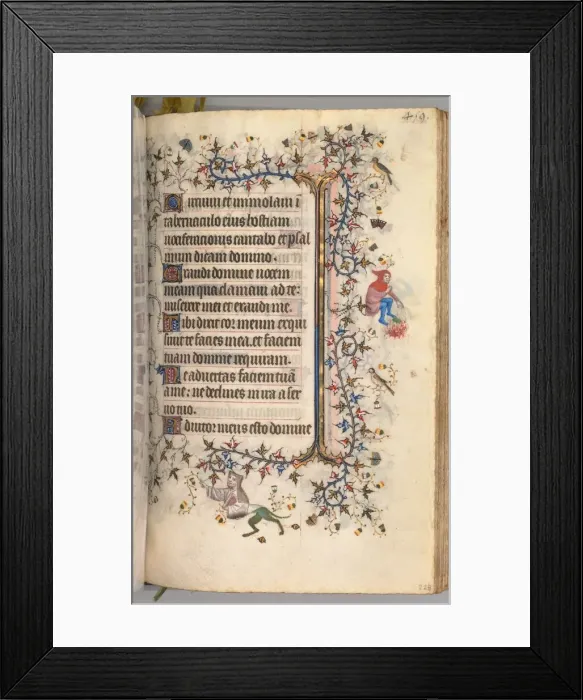 Circuivi et immolavi i
tabernaculo eius hostiam
vociferacionis cantabo et psal
mum dicam domino.
Exaudi domine vocem
meam qua clamavi ad te:
miserere mei et exaudi me.
Tibi dixit cor meum exqui
sivit te facies mea. et faciem
tuam domine requiram.
Ne avertas faciem tuā
a me: ne declines in ira a ser
vo tuo.
Adiutor meus esto domine